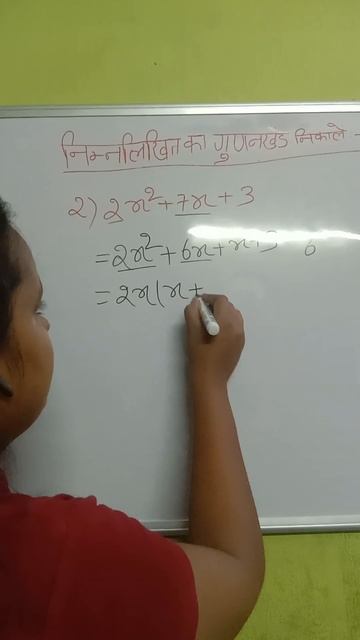 निम्नलिखित का गुणनखंड निकाले -
२) 2x² + 7x + 3
= 2x² + 6x + x + 3 6
= 2x(x +